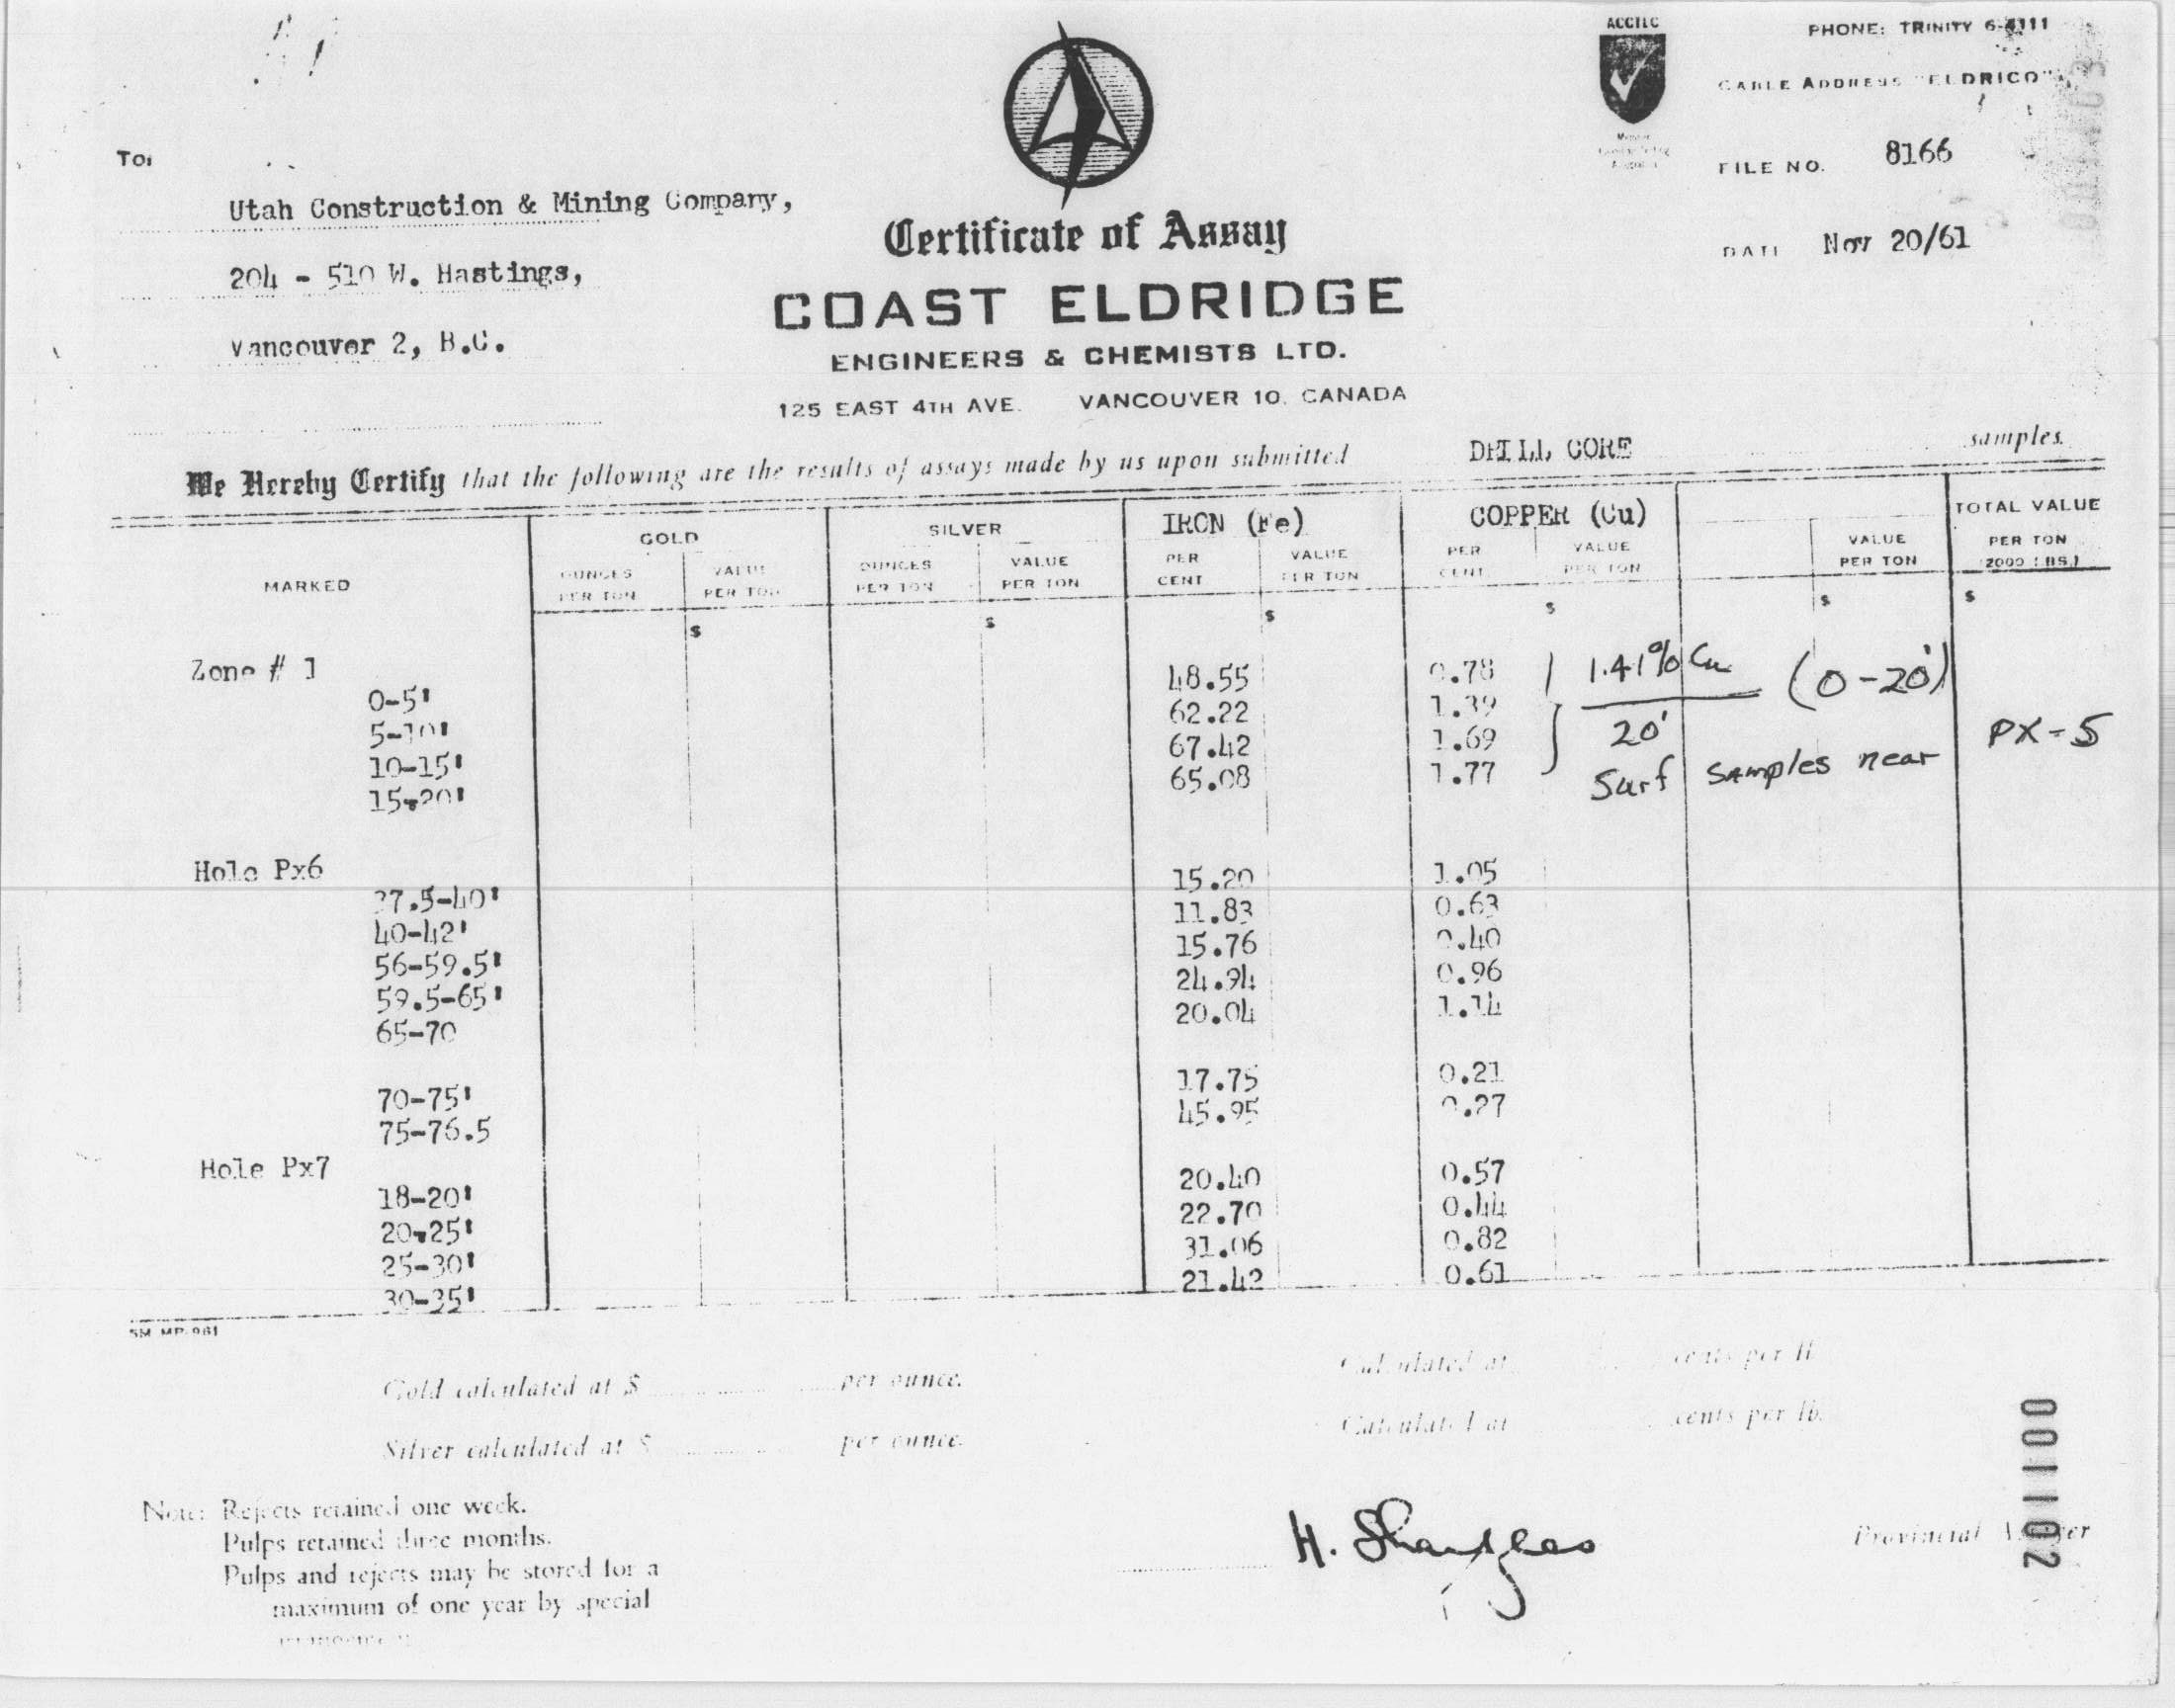 ACCTLC
PHONE: TRINITY 6-4111
CABLE ADDRESS "ELDRICO"
To:
FILE NO. 8166
Utah Construction & Mining Company,
DATE Nov 20/61
Certificate of Assay
204 - 510 W. Hastings,
COAST ELDRIDGE
Vancouver 2, B.C.
ENGINEERS & CHEMISTS LTD.
125 EAST 4TH AVE. VANCOUVER 10, CANADA
We Hereby Certify that the following are the results of assays made by us upon submitted DRILL CORE samples.
MARKED GOLD SILVER IRON (Fe) COPPER (Cu) TOTAL VALUE
OUNCES PER TON VALUE PER TON OUNCES PER TON VALUE PER TON PER CENT VALUE PER TON PER CENT VALUE PER TON VALUE PER TON PER TON (2000 LBS.)
$ $ $ $ $ $
Zone # 1
0-5' 48.55 0.78
5-10' 62.22 1.39
10-15' 67.42 1.69
15-20' 65.08 1.77
1.41% Cu (0-20')
20'
Surf samples near PX-5
Hole Px6
37.5-40' 15.20 1.05
40-42' 11.83 0.63
56-59.5' 15.76 0.40
59.5-65' 24.94 0.96
65-70 20.04 1.14
70-75' 17.75 0.21
75-76.5 45.95 0.27
Hole Px7
18-20' 20.40 0.57
20-25' 22.70 0.44
25-30' 31.06 0.82
30-35' 21.42 0.61
5M MP-961
Gold calculated at $ per ounce. Calculated at cents per lb.
Silver calculated at $ per ounce. Calculated at cents per lb.
Note: Rejects retained one week.
Pulps retained three months.
Pulps and rejects may be stored for a
maximum of one year by special
H.
Provincial
001102